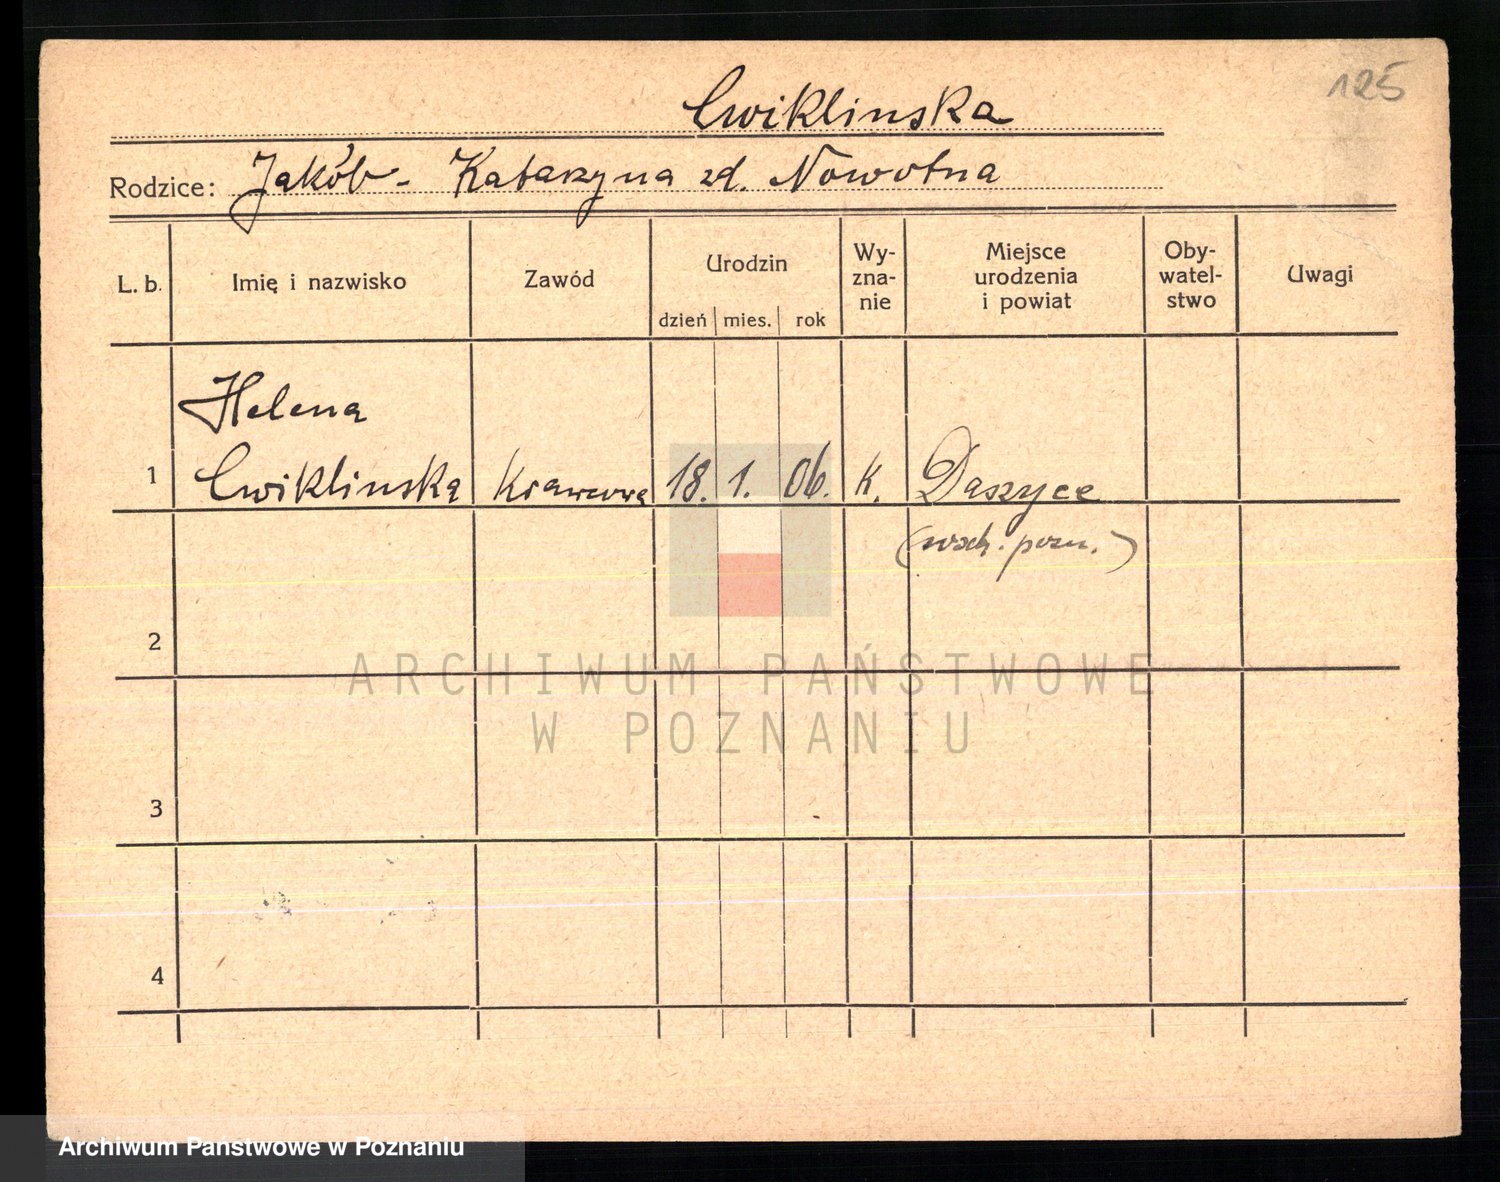 125
Cwiklinska
Rodzice: Jakób - Katarzyna zd. Nowotna
L. b. Imię i nazwisko Zawód Urodzin dzień mies. rok Wy-zna-nie Miejsce urodzenia i powiat Oby-watel-stwo Uwagi
Helena
1 Cwiklinska Krawcowa 18. 1. 06. K. Daszyce
2
ARCHIWUM PAŃSTWOWE
W POZNANIU
3
4
Archiwum Państwowe w Poznaniu